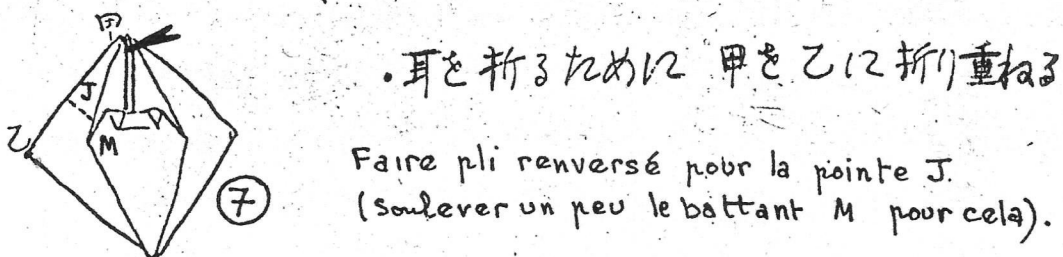 甲
・耳を折るために 甲を乙に折り重ねる
J
乙
M
Faire pli renversé pour la pointe J.
(Soulever un peu le battant M pour cela).
7